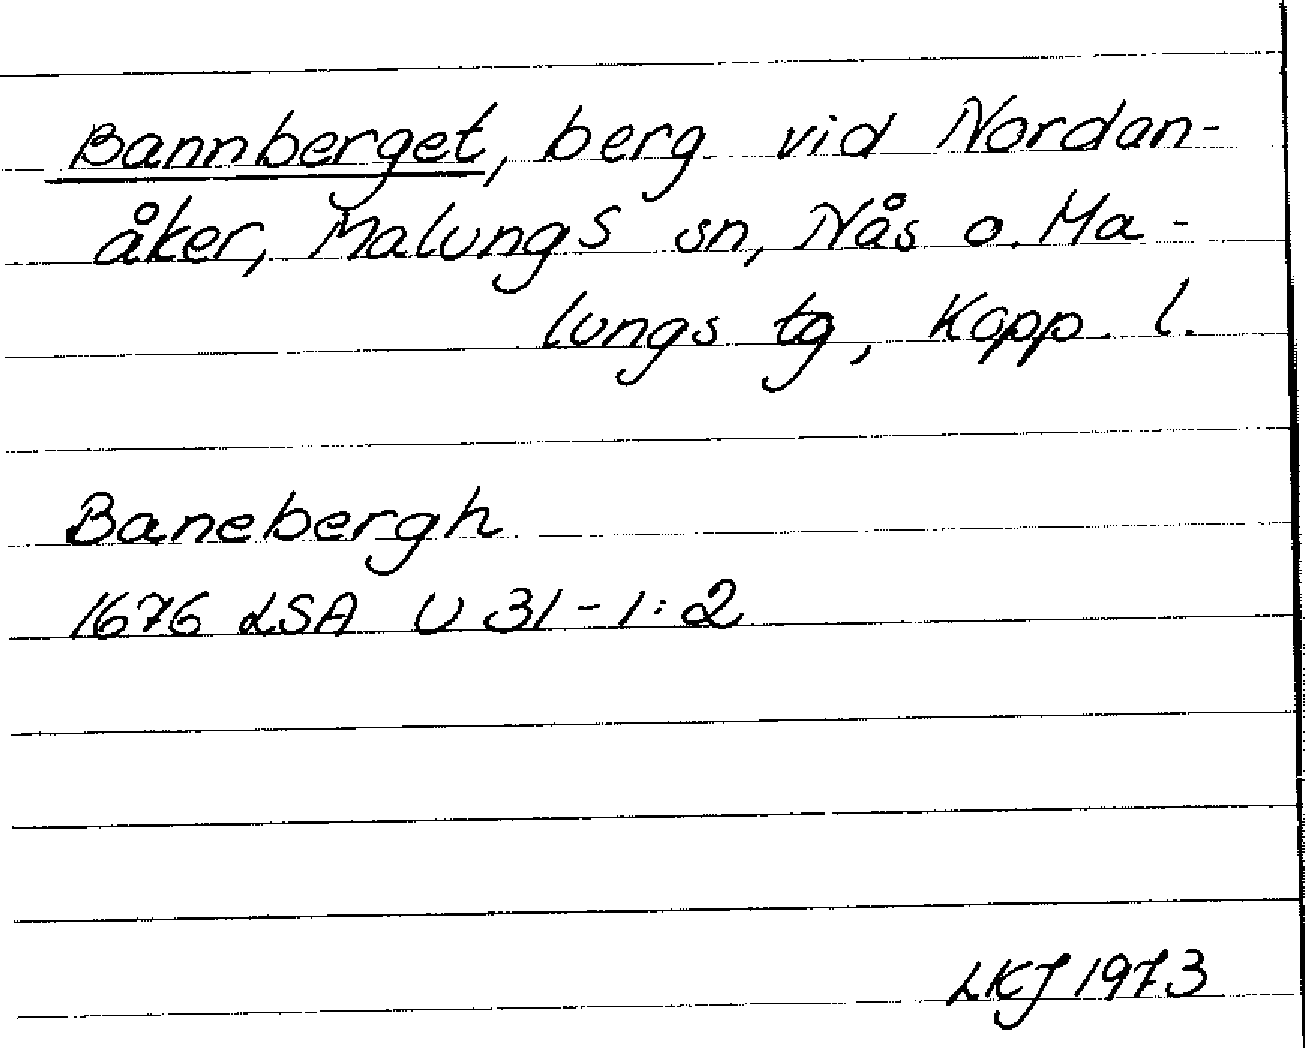 Bannberget, berg vid Nordan-
åker, Malungs sn, Nås o. Ma-
lungs tg, Kopp. l.
Banebergh
1676 LSA U 31-1:2
LKJ 1973